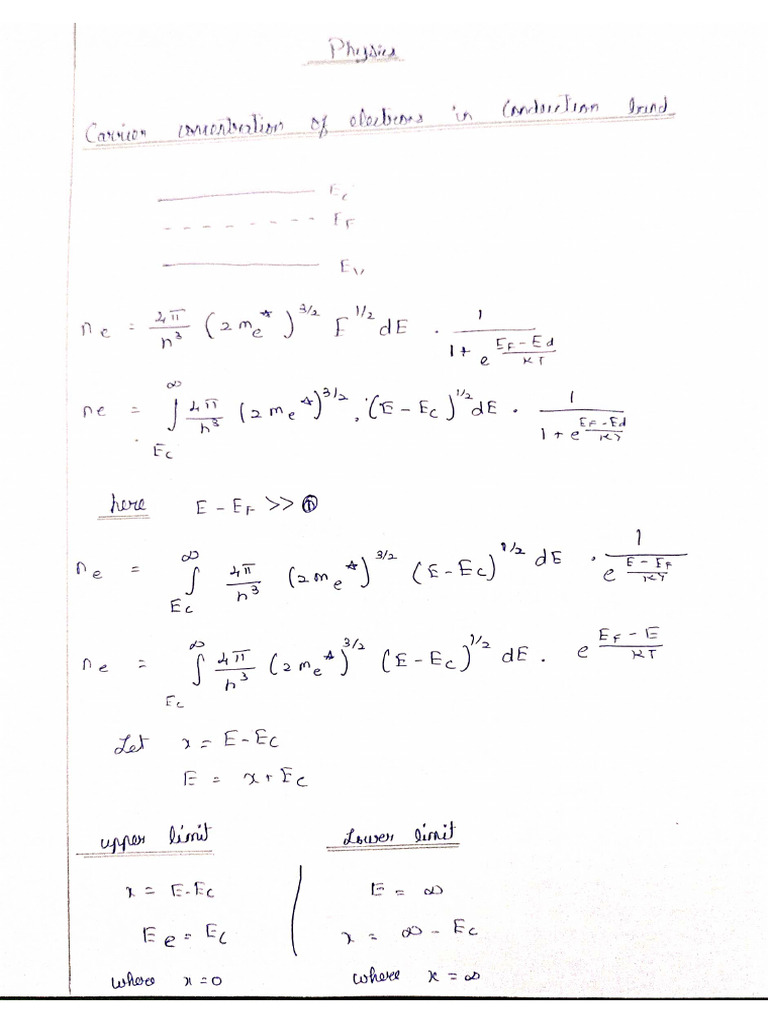 Physics
Carrier concentration of electrons in conduction band
E_c
E_F
E_V
n_e = 4π/h³ (2m_e*)^3/2 E^1/2 dE . 1/(1 + e^((E_F - Ed)/KT))
n_e = ∫_Ec^∞ 4π/h³ (2m_e*)^3/2 . (E - E_c)^1/2 dE . 1/(1 + e^((E_F - Ed)/KT))
here E - E_F >>
n_e = ∫_Ec^∞ 4π/h³ (2m_e*)^3/2 (E - Ec)^1/2 dE . 1/e^((E - E_F)/KT)
n_e = ∫_Ec^∞ 4π/h³ (2m_e*)^3/2 (E - E_c)^1/2 dE . e^((E_F - E)/KT)
Let x = E - E_c
E = x + E_c
upper limit Lower limit
x = E - E_c E = ∞
E_e = E_c x = ∞ - E_c
where x = 0 where x = ∞